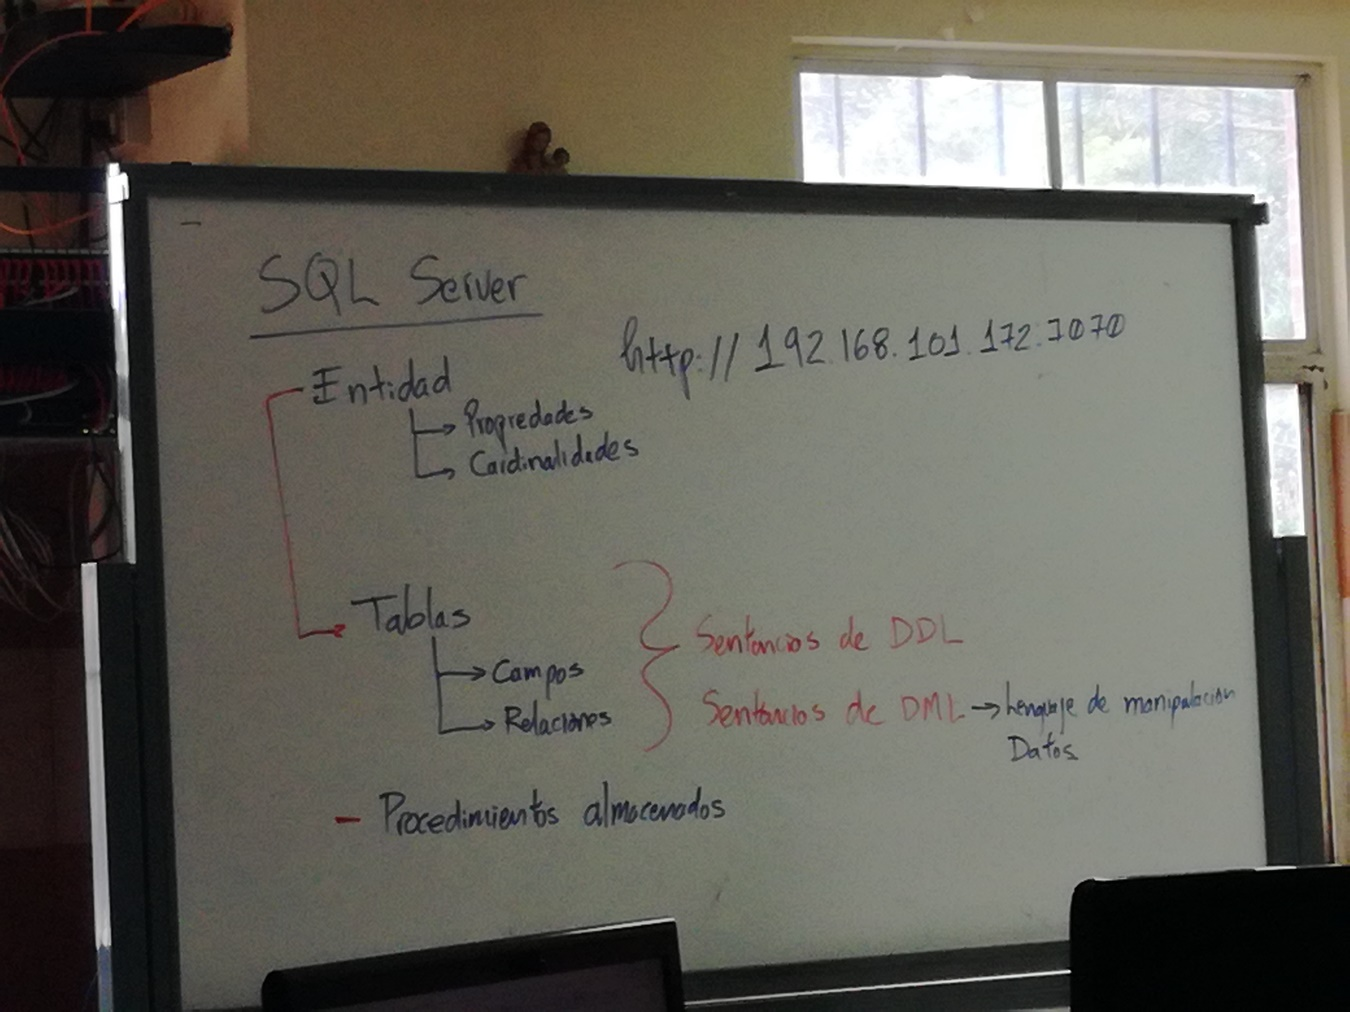 SQL Server
http://192.168.101.172:7070
Entidad
Propiedades
Cardinalidades
Tablas
Campos
Relaciones
Sentencias de DDL
Sentencias de DML → Lenguaje de manipulacion
Datos
- Procedimientos almacenados